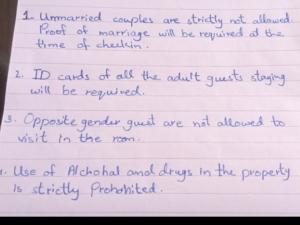 1. Unmarried couples are strictly not allowed.
Proof of marriage will be required at the
time of checkin.
2. ID cards of all the adult guests staying
will be required.
3. Opposite gender guest are not allowed to
visit in the room.
4. Use of Alchohal and drugs in the property
is strictly Prohobited.